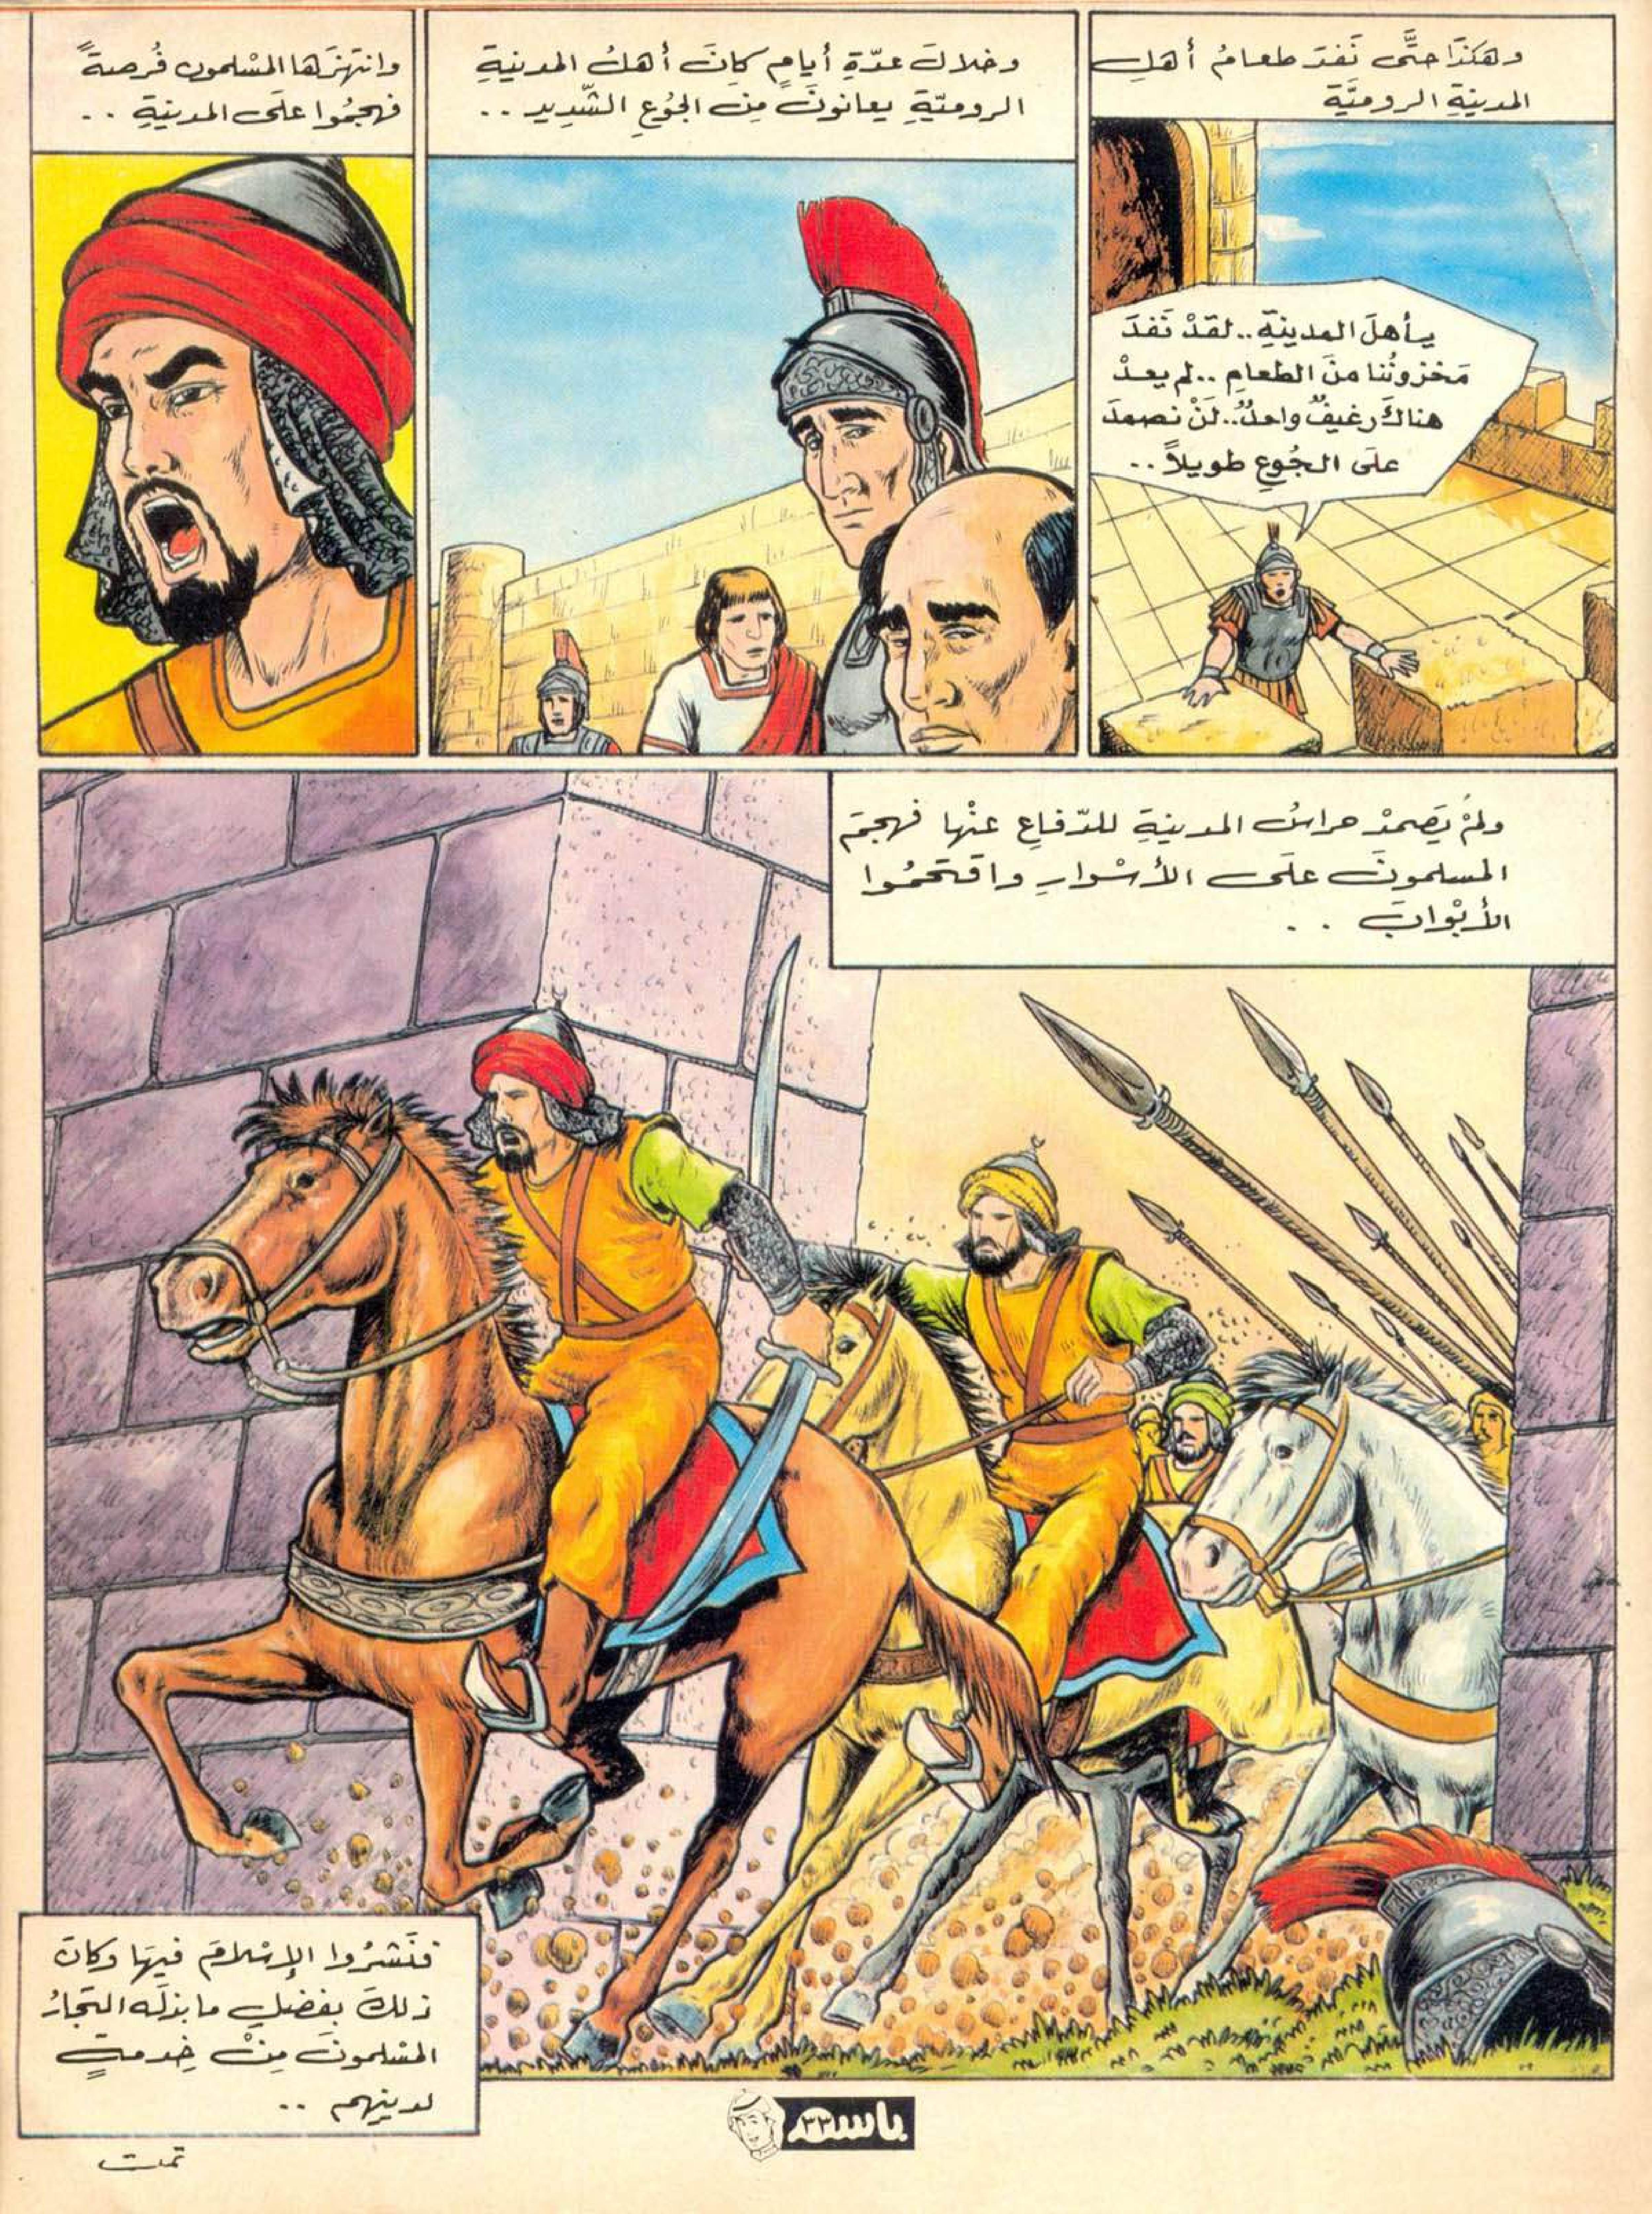 وهكذَا حتَّى نَفدَ طعامُ أهلِ
المدينةِ الروميَّة
يأهلَ المدينةِ.. لقدْ نَفدَ
مَخزونُنا منَ الطعامِ.. لم يعدْ
هناكَ رغيفٌ واحدٌ.. لَنْ نصمدَ
علَى الجُوعِ طويلاً..
وخلالَ عدّةِ أيامٍ كانَ أهلُ المدينةِ
الروميّةِ يعانونَ مِن الجُوعِ الشّدِيدِ ..
وانتهزَها المسْلمون فُرصةً
فهجمُوا علَى المدينةِ ..
ولمْ يَصمدْ حراسُ المدينةِ للدّفاعِ عنْها فهجمَ
المسلمونَ علَى الأسْوارِ واقتحمُوا
الأبْوابَ ..
فنَشرُوا الإسْلامَ فيهَا وكانَ
ذلكَ بفضلِ ما بذلَه التجارُ
المسْلمونَ مِنْ خِدمةٍ
لدينِهم ..
تمت
باسم ٣٣